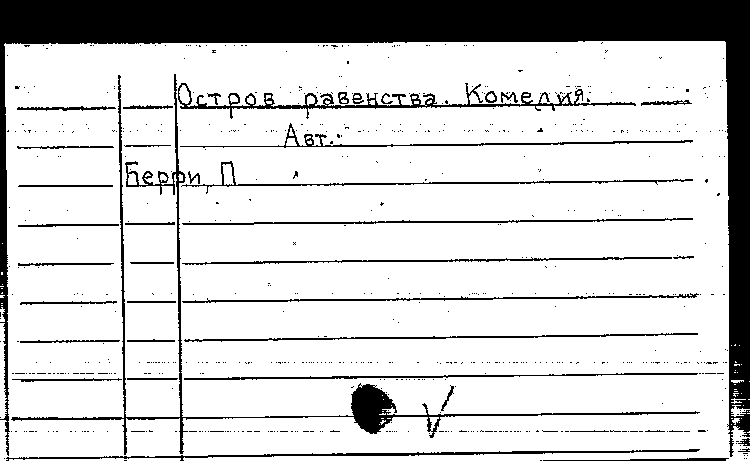 Остров равенства. Комедия.
Авт.:
Берри, П